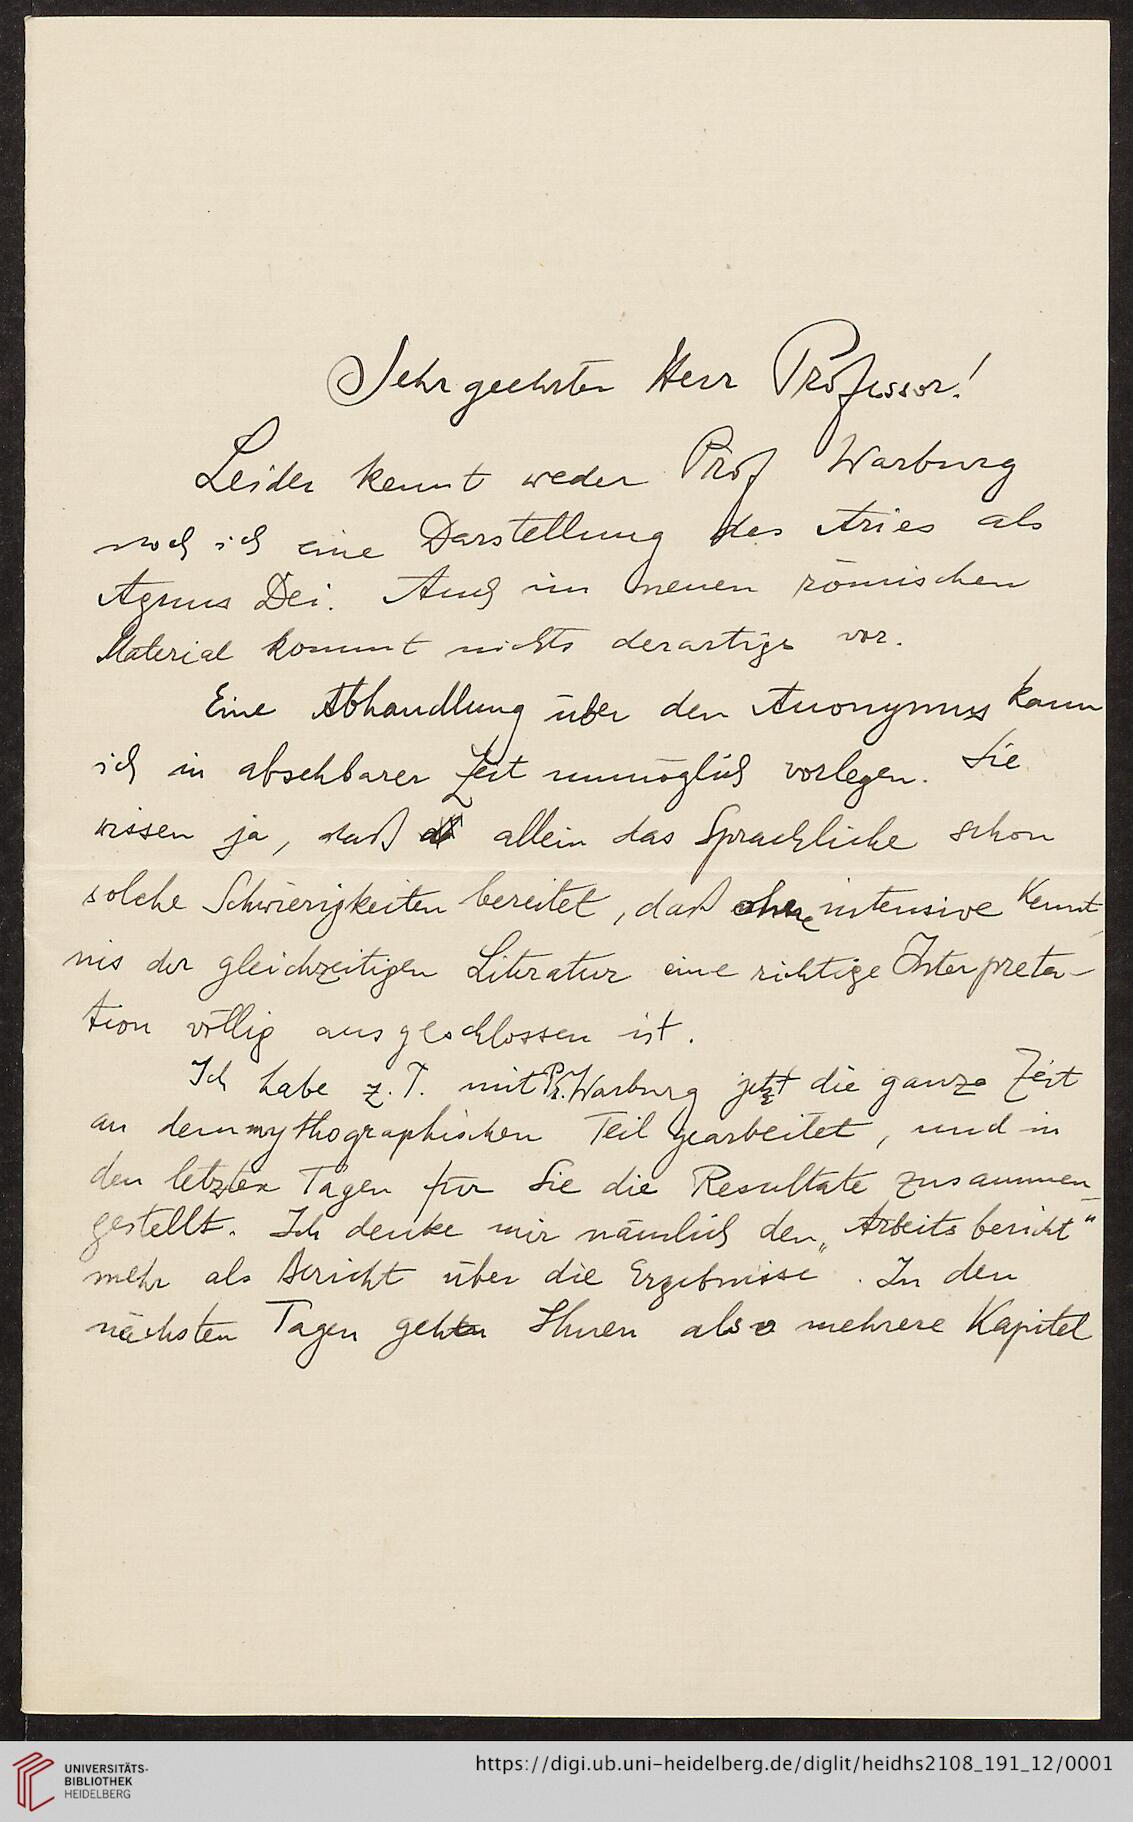 Sehr geehrter Herr Professor!
Leider kennt weder Prof Warburg
noch ich eine Darstellung des Aries als
Agnus Dei. Auch im neuen römischen
Material kommt nichts derartiges vor.
Eine Abhandlung über den Anonymus kann
ich in absehbarer Zeit unmöglich vorlegen. Sie
wissen ja, daß allein das Sprachliche schon
solche Schwierigkeiten bereitet, daß ohne intensive Kennt-
nis der gleichzeitigen Literatur eine richtige Interpreta-
tion völlig ausgeschlossen ist.
Ich habe z. T. mit Pr. Warburg jetzt die ganze Zeit
an dem mythographischen Teil gearbeitet, und in
den letzten Tagen für Sie die Resultate zusammen-
gestellt. Ich denke mir nämlich den „Arbeitsbericht“
mehr als Bericht über die Ergebnisse. In den
nächsten Tagen gehen Ihnen also mehrere Kapitel
UNIVERSITÄTS-
BIBLIOTHEK
HEIDELBERG
https://digi.ub.uni-heidelberg.de/diglit/heidhs2108_191_12/0001